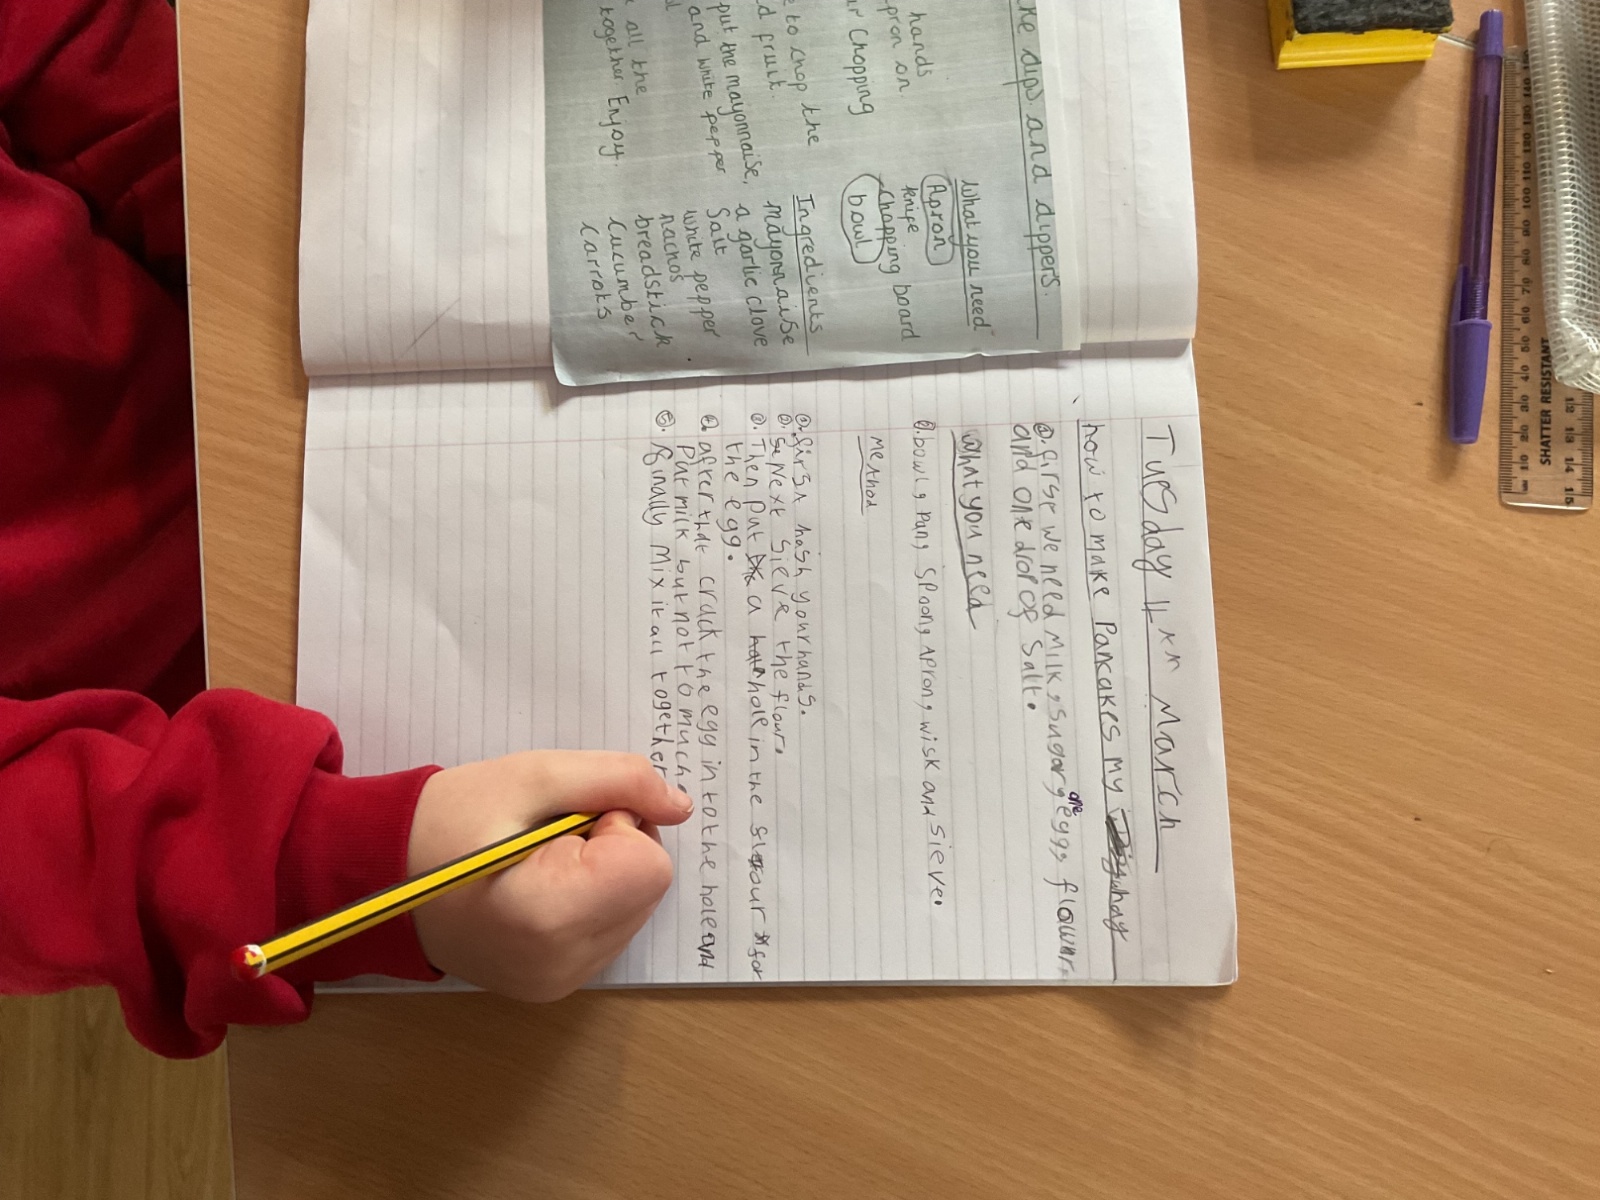 ke dips and dippers.
hands
pron on.
ur chopping
e to chop the
d fruit.
put the mayonnaise,
and white pepper
all the
together Enjoy.
What you need
Apron
knife
Chopping board
bowl
Ingredients
mayonnaise
a garlic clove
Salt
white pepper
nachos
breadstick
Cucumber
Carrots
Tuesday 4th March
how to make Pancakes my whay
first we need Milk, sugar, one egg, flowr,
and one drop of Salt.
What you need
bowl, pan, Spoon, Apron, wisk and sieve.
Method
first hash your hands.
Next sieve the flour.
Then put a hole in the slour for
the egg.
after that crack the egg in to the hole and
Put milk but not to much.
finally Mix it all together
SHATTER RESISTANT